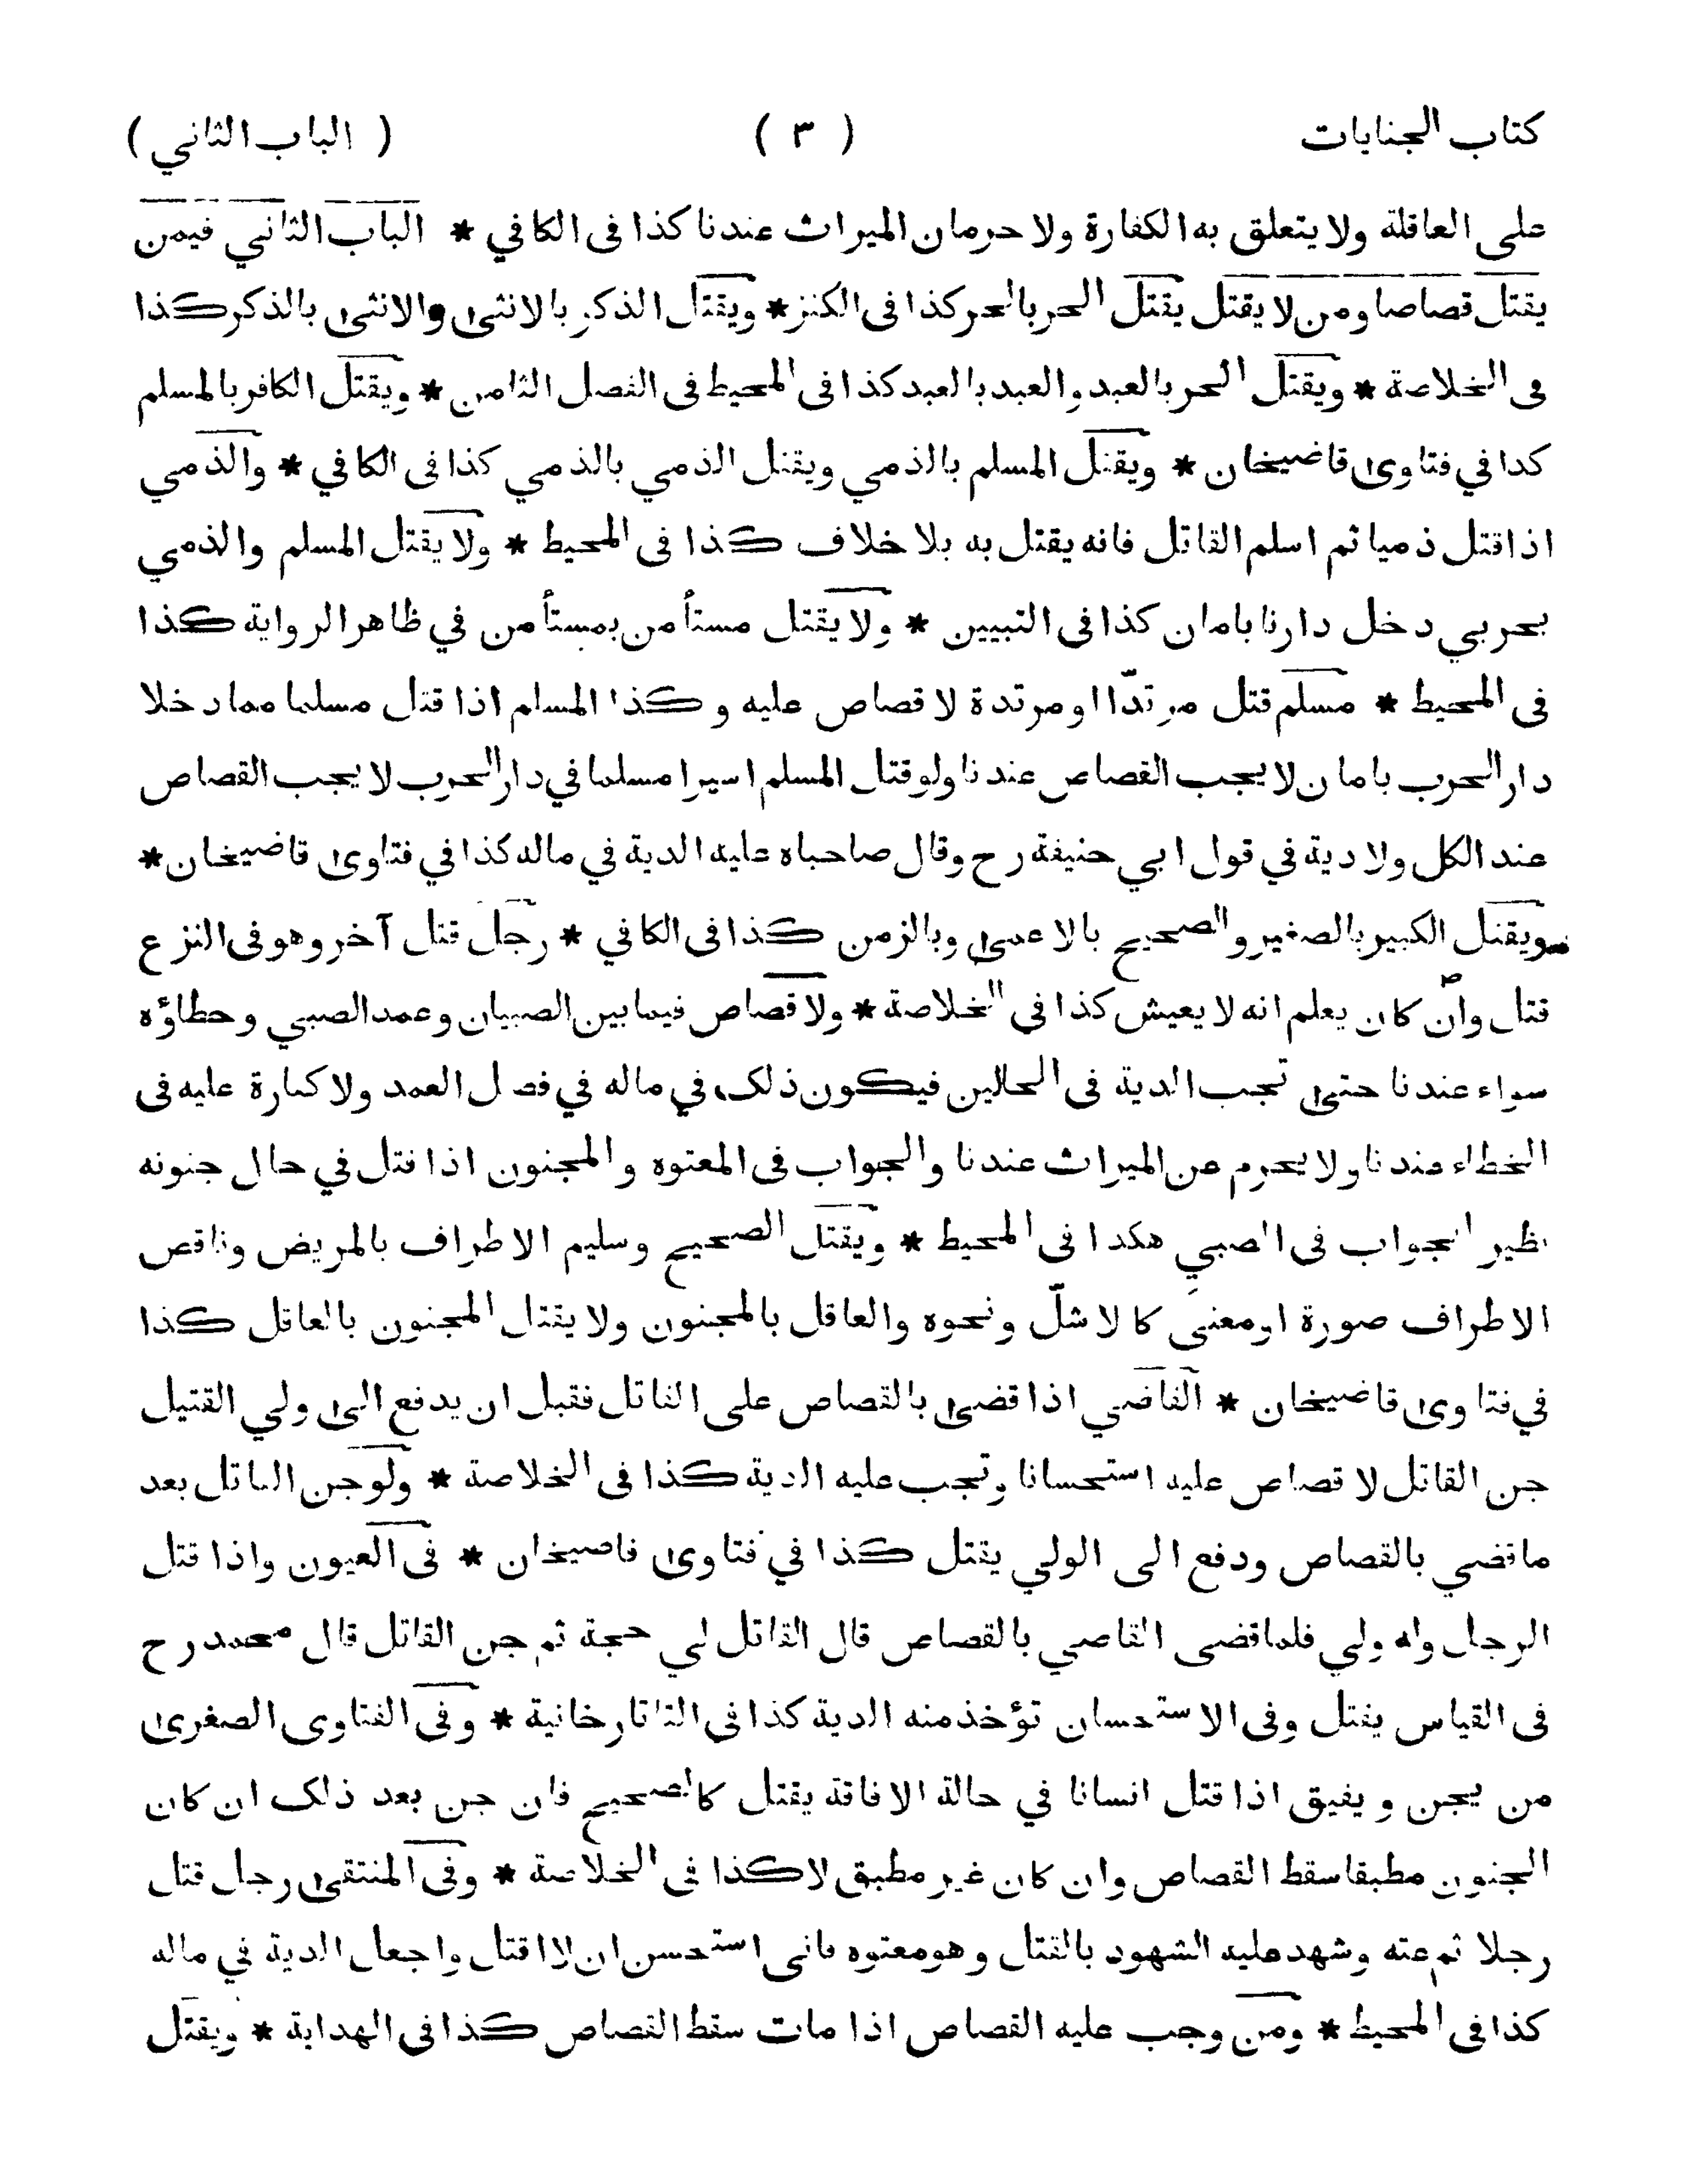 كتاب الجنايات ( ٣ ) ( الباب الثاني )
على العاقلة ولا يتعلق به الكفارة ولا حرمان الميراث عندنا كذا فى الكافي * الباب الثاني فيمن
يقتل قصاصا ومن لا يقتل يقتل الحر بالحر كذا فى الكنز * ويقتل الذكر بالانثى والانثى بالذكر كذا
فى الخلاصة * ويقتل الحر بالعبد والعبد بالعبد كذا فى المحيط فى الفصل الثامن * ويقتل الكافر بالمسلم
كذا في فتاوى قاضيخان * ويقتل المسلم بالذمي ويقتل الذمي بالذمي كذا فى الكافي * والذمي
اذا قتل ذميا ثم اسلم القاتل فانه يقتل به بلا خلاف كذا فى المحيط * ولا يقتل المسلم والذمي
بحربي دخل دارنا بامان كذا فى التبيين * ولا يقتل مستأمن بمستأمن في ظاهر الرواية كذا
فى المحيط * مسلم قتل مرتدّا او مرتدة لا قصاص عليه وكذا المسلم اذا قتل مسلما مما دخلا
دار الحرب بامان لا يجب القصاص عندنا ولو قتل المسلم اسيرا مسلما في دار الحرب لا يجب القصاص
عند الكل ولا دية في قول ابي حنيفة رح وقال صاحباه عليه الدية في ماله كذا في فتاوى قاضيخان *
ويقتل الكبير بالصغير والصحيح بالاعمى وبالزمن كذا فى الكافي * رجل قتل آخر وهو فى النزع
قتل وان كان يعلم انه لا يعيش كذا في الخلاصة * ولا قصاص فيما بين الصبيان وعمد الصبي وخطاؤه
سواء عندنا حتى تجب الدية فى الحالين فيكون ذلك في ماله في فصل العمد ولا كفارة عليه فى
الخطاء عندنا ولا يحرم عن الميراث عندنا والجواب فى المعتوه والمجنون اذا قتل في حال جنونه
نظير الجواب فى الصبي هكذا فى المحيط * ويقتل الصحيح وسليم الاطراف بالمريض وناقص
الاطراف صورة او معنى كالاشلّ ونحوه والعاقل بالمجنون ولا يقتل المجنون بالعاقل كذا
في فتاوى قاضيخان * القاضي اذا قضى بالقصاص على القاتل فقبل ان يدفع الى ولي القتيل
جن القاتل لا قصاص عليه استحسانا وتجب عليه الدية كذا فى الخلاصة * ولو جن القاتل بعد
ما قضي بالقصاص ودفع الى الولي يقتل كذا في فتاوى قاضيخان * فى العيون واذا قتل
الرجل وله ولي فلما قضى القاضي بالقصاص قال القاتل لي حجة ثم جن القاتل قال محمد رح
فى القياس يقتل وفى الاستحسان تؤخذ منه الدية كذا فى التاتارخانية * وفى الفتاوى الصغرى
من يجن ويفيق اذا قتل انسانا في حالة الافاقة يقتل كالصحيح فان جن بعد ذلك ان كان
الجنون مطبقا سقط القصاص وان كان غير مطبق لا كذا فى الخلاصة * وفى المنتقى رجل قتل
رجلا ثم عته وشهد عليه الشهود بالقتل وهو معتوه فانى استحسن ان لا اقتل واجعل الدية في ماله
كذا فى المحيط * ومن وجب عليه القصاص اذا مات سقط القصاص كذا فى الهداية * ويقتل